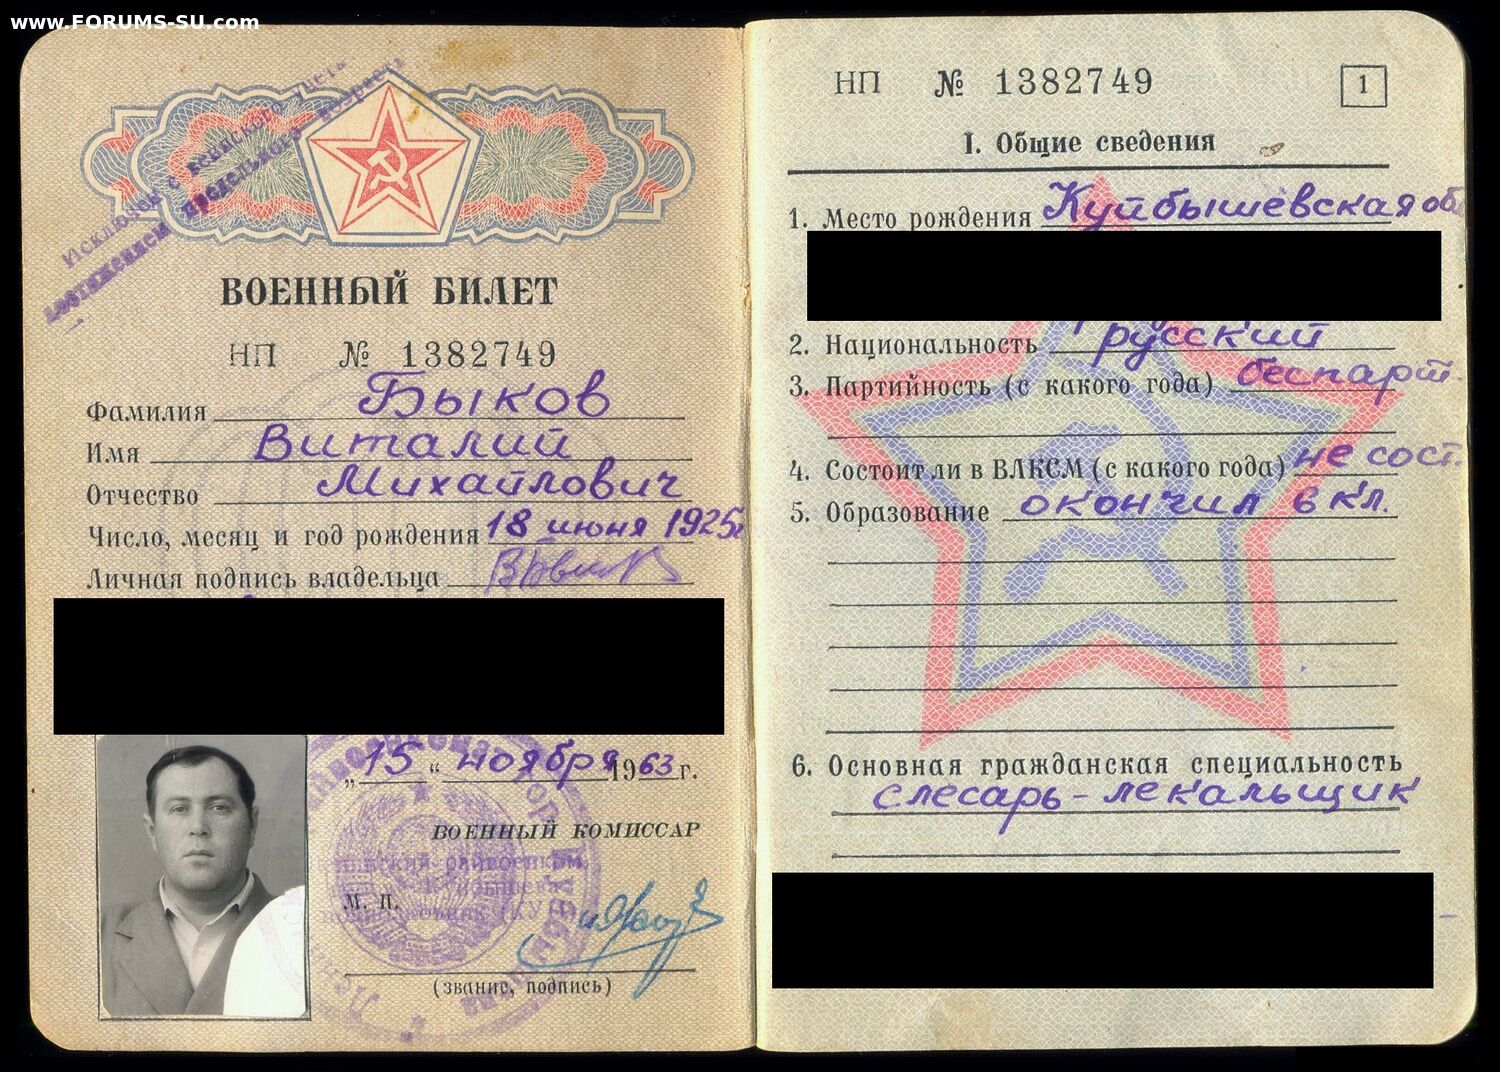 www.FORUMS-SU.com
Исключен с воинского учета
достижением предельного возраста
ВОЕННЫЙ БИЛЕТ
НП № 1382749
Фамилия Быков
Имя Виталий
Отчество Михайлович
Число, месяц и год рождения 18 июня 1925г
Личная подпись владельца
„15“ ноября 1963 г.
ВОЕННЫЙ КОМИССАР
М. П.
(звание, подпись)
НП № 1382749
1
I. Общие сведения
1. Место рождения Куйбышевская об
2. Национальность русский
3. Партийность (с какого года) беспарт.
4. Состоит ли в ВЛКСМ (с какого года) не сост.
5. Образование окончил 6 кл.
6. Основная гражданская специальность
слесарь-лекальщик